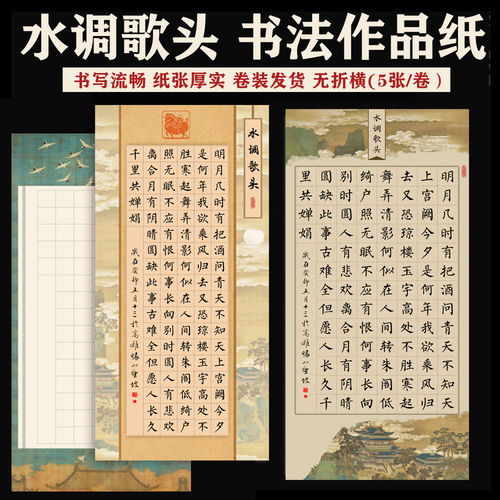 水调歌头 书法作品纸
书写流畅 纸张厚实 卷装发货 无折横(5张/卷)
水调歌头
明月几时有把酒问青天不知天上宫阙今夕
是何年我欲乘风归去又恐琼楼玉宇高处不
胜寒起舞弄清影何似在人间转朱阁低绮户
照无眠不应有恨何事长向别时圆人有悲欢
离合月有阴晴圆缺此事古难全但愿人长久
千里共婵娟
岁在癸卯五月十三于
水调歌头
明月几时有把酒问青天不知天
上宫阙今夕是何年我欲乘风归
去又恐琼楼玉宇高处不胜寒起
舞弄清影何似在人间转朱阁低
绮户照无眠不应有恨何事长向
别时圆人有悲欢离合月有阴晴
圆缺此事古难全但愿人长久千
里共婵娟